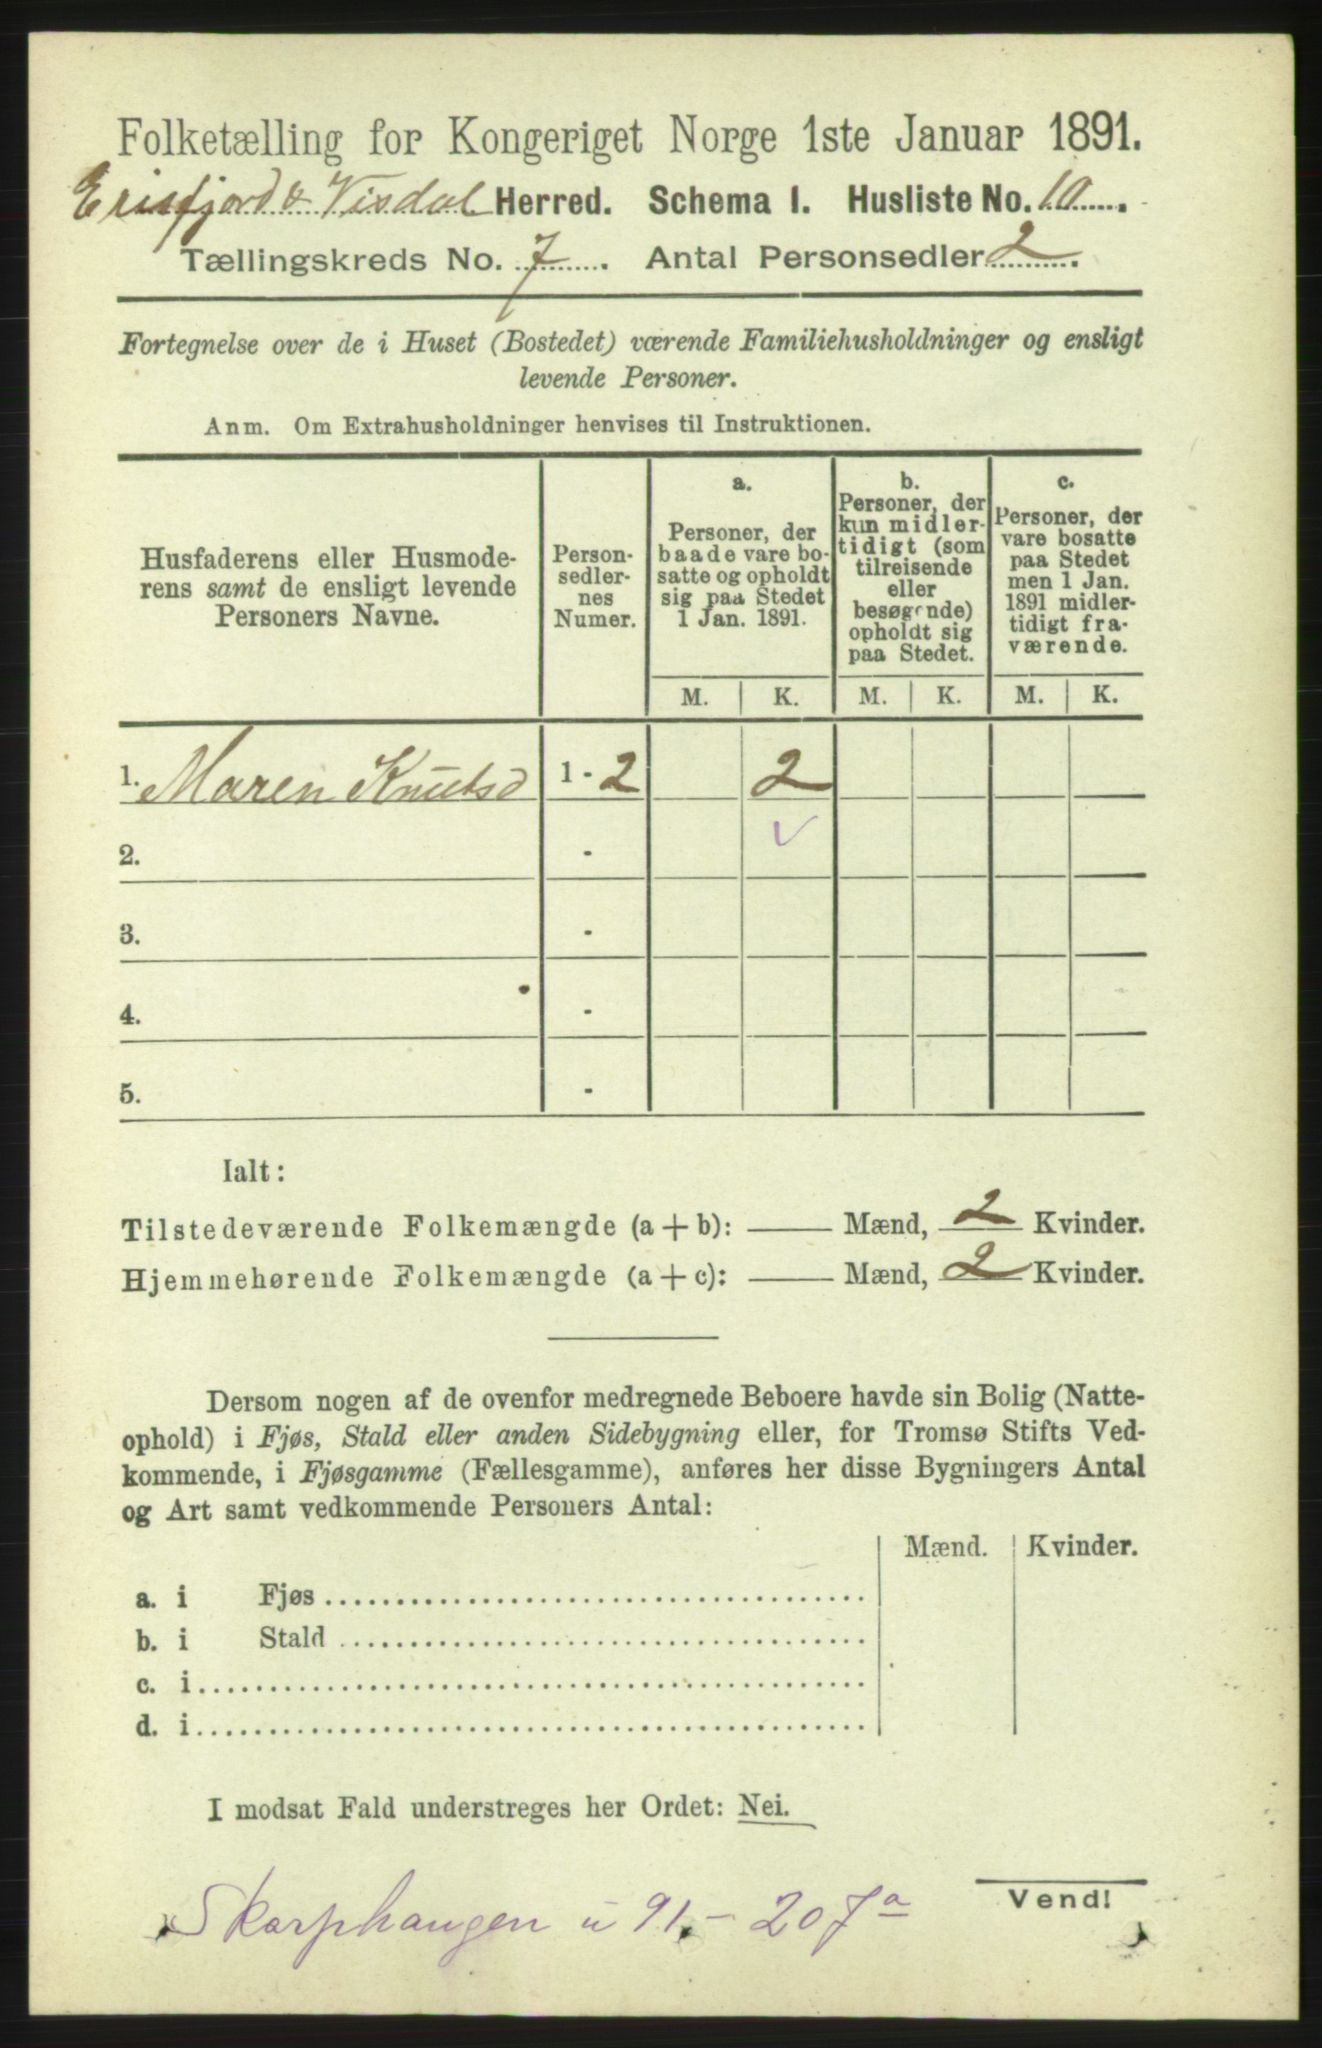 Folketælling for Kongeriget Norge 1ste Januar 1891.
Erisfjord & Visdal Herred. Schema I. Husliste No. 10.
Tællingskreds No. 7. Antal Personsedler 2.
Fortegnelse over de i Huset (Bostedet) værende Familiehusholdninger og ensligt
levende Personer.
Anm. Om Extrahusholdninger henvises til Instruktionen.
Husfaderens eller Husmode-
rens samt de ensligt levende
Personers Navne.
Person-
sedler-
nes
Numer.
a.
Personer, der
baade vare bo-
satte og opholdt
sig paa Stedet
1 Jan. 1891.
b.
Personer, der
kun midler-
tidigt (som
tilreisende
eller
besøgende)
opholdt sig
paa Stedet.
c.
Personer, der
vare bosatte
paa Stedet
men 1 Jan.
1891 midler-
tidigt fra-
værende.
M. K. M. K. M. K.
1. Maren Knutsd 1 - 2 2
2. -
3. -
4. -
5. -
Ialt:
Tilstedeværende Folkemængde (a + b): Mænd, 2 Kvinder.
Hjemmehørende Folkemængde (a + c): Mænd, 2 Kvinder.
Dersom nogen af de ovenfor medregnede Beboere havde sin Bolig (Natte-
ophold) i Fjøs, Stald eller anden Sidebygning eller, for Tromsø Stifts Ved-
kommende, i Fjøsgamme (Fællesgamme), anføres her disse Bygningers Antal
og Art samt vedkommende Personers Antal:
Mænd. Kvinder.
a. i Fjøs
b. i Stald
c. i
d. i
I modsat Fald understreges her Ordet: Nei.
Vend!
Skarphaugen u 91. - 207a